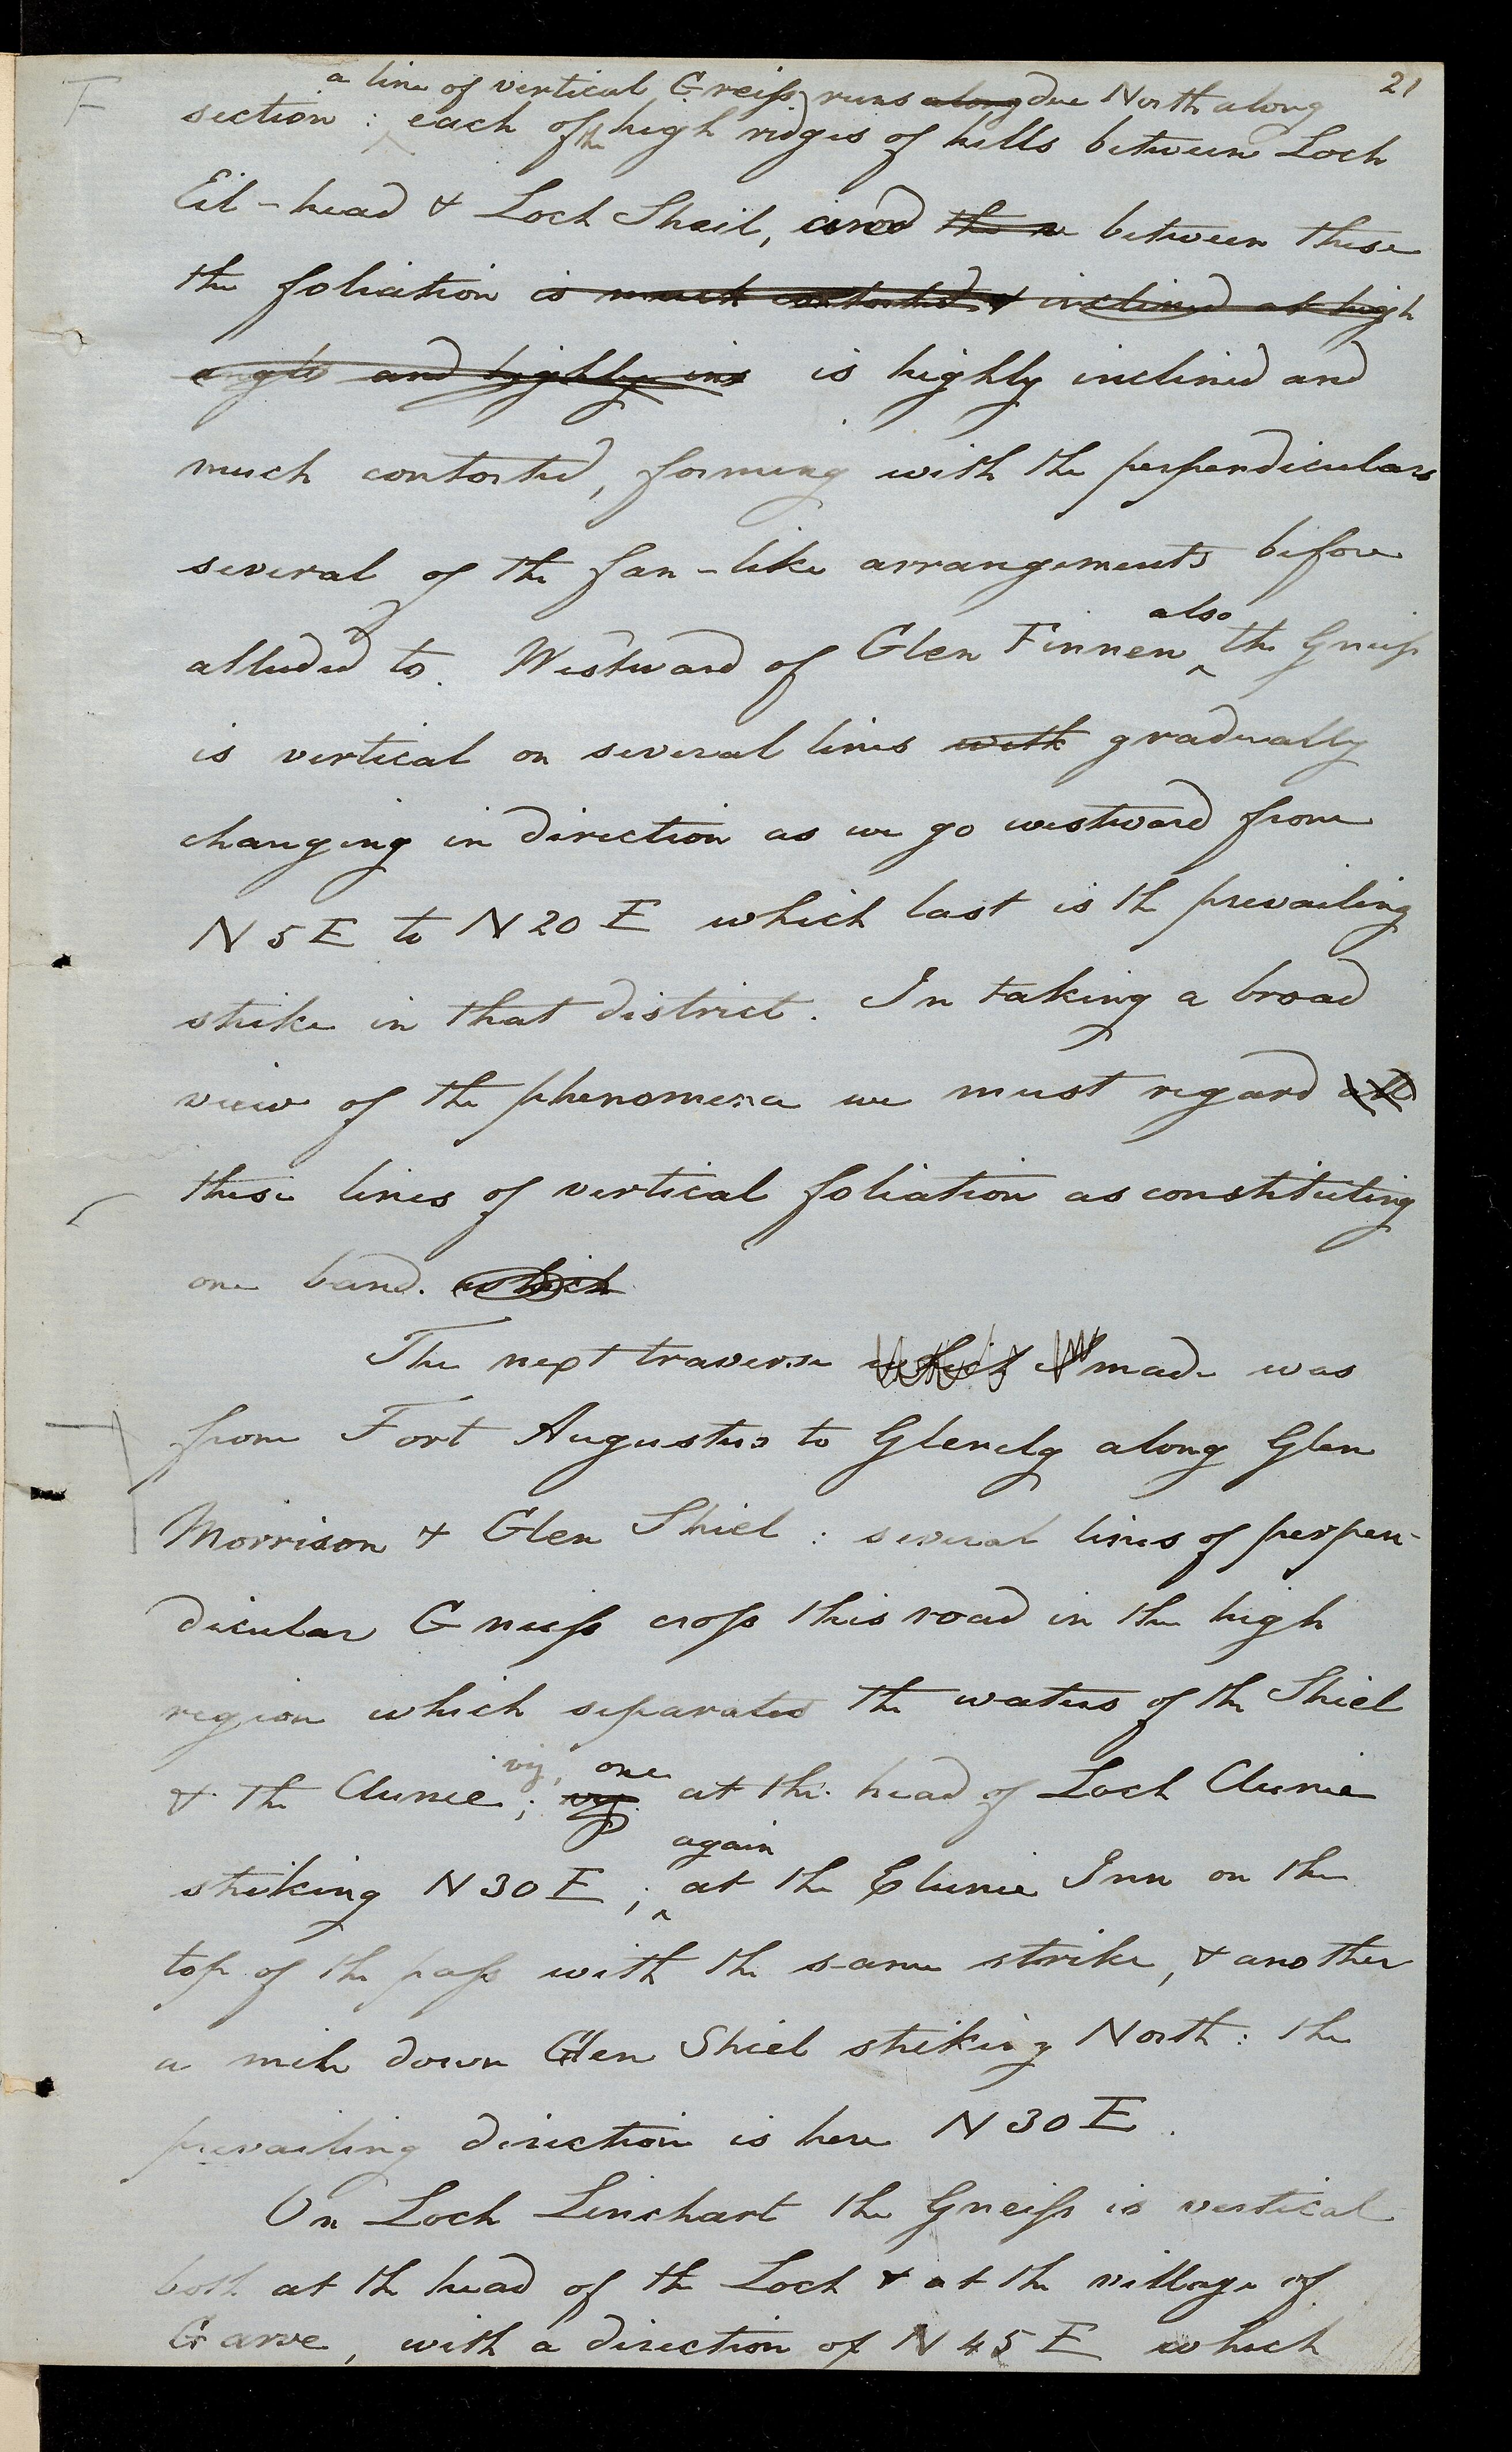 21
F
a line of vertical Gneiss runs along due North along
section : each of the high ridges of hills between Loch
Eil-head & Loch Sheil, and between these
the foliation is much contorted & inclined at high
angles and highly inc is highly inclined and
much contorted, forming with the perpendiculars
several of the fan-like arrangements before
also
alluded to. Westward of Glen Finnen the Gneiss
is vertical on several lines with gradually
changing in direction as we go westward from
N 5 E to N 20 E which last is th prevailing
strike in that district. In taking a broad
view of the phenomena we must regard all
these lines of vertical foliation as constituting
one band. which
The next traverse which I made was
from Fort Augustus to Glenelg along Glen
Morrison & Glen Shiel : several lines of perpen-
dicular Gneiss cross this road in the high
region which separates the waters of th Shiel
viz, one
& the Clunie ; viz. at the head of Loch Clunie
again
striking N 30 E ; at the Clunie Inn on the
top of the pass with the same strike, & another
a mile down Glen Shiel striking North : the
prevailing direction is here N 30 E.
On Loch Linchart the Gneiss is vertical
both at th head of th Loch & at the village of
Garve, with a direction of N 45 E which